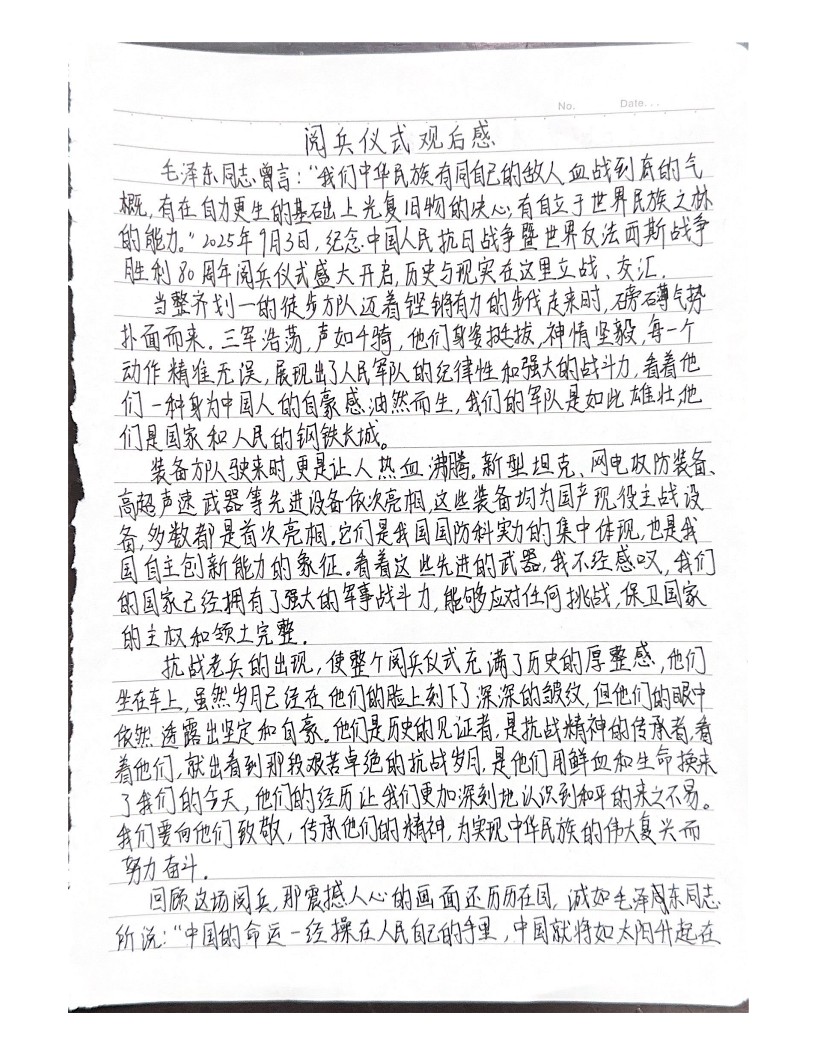 No.
Date...
阅兵仪式观后感
毛泽东同志曾言："我们中华民族有同自己的敌人血战到底的气
概，有在自力更生的基础上光复旧物的决心，有自立于世界民族之林
的能力。"2025年9月3日，纪念中国人民抗日战争暨世界反法西斯战争
胜利80周年阅兵仪式盛大开启，历史与现实在这里立战、交汇.
当整齐划一的徒步方队迈着铿锵有力的步伐走来时，磅礴气势
扑面而来。三军浩荡，声如千骑，他们身姿挺拔，神情坚毅，每一个
动作精准无误，展现出了人民军队的纪律性和强大的战斗力，看着他
们一种身为中国人的自豪感油然而生，我们的军队是如此雄壮，他
们是国家和人民的钢铁长城。
装备方队驶来时，更是让人热血沸腾。新型坦克、网电攻防装备、
高超声速武器等先进设备依次亮相，这些装备均为国产现役主战设
备，多数都是首次亮相。它们是我国国防科实力的集中体现，也是我
国自主创新能力的象征。看着这些先进的武器，我不经感叹，我们
的国家已经拥有了强大的军事战斗力，能够应对任何挑战，保卫国家
的主权和领土完整.
抗战老兵的出现，使整个阅兵仪式充满了历史的厚整感，他们
坐在车上，虽然岁月已经在他们的脸上刻下了深深的皱纹，但他们的眼中
依然透露出坚定和自豪。他们是历史的见证者，是抗战精神的传承者，看
着他们，就出看到那段艰苦卓绝的抗战岁月，是他们用鲜血和生命换来
了我们的今天，他们的经历让我们更加深刻地认识到和平的来之不易。
我们要向他们致敬，传承他们的精神，为实现中华民族的伟大复兴而
努力奋斗.
回顾这场阅兵，那震撼人心的画面还历历在目，诚如毛泽东同志
所说："中国的命运一经操在人民自己的手里，中国就将如太阳升起在